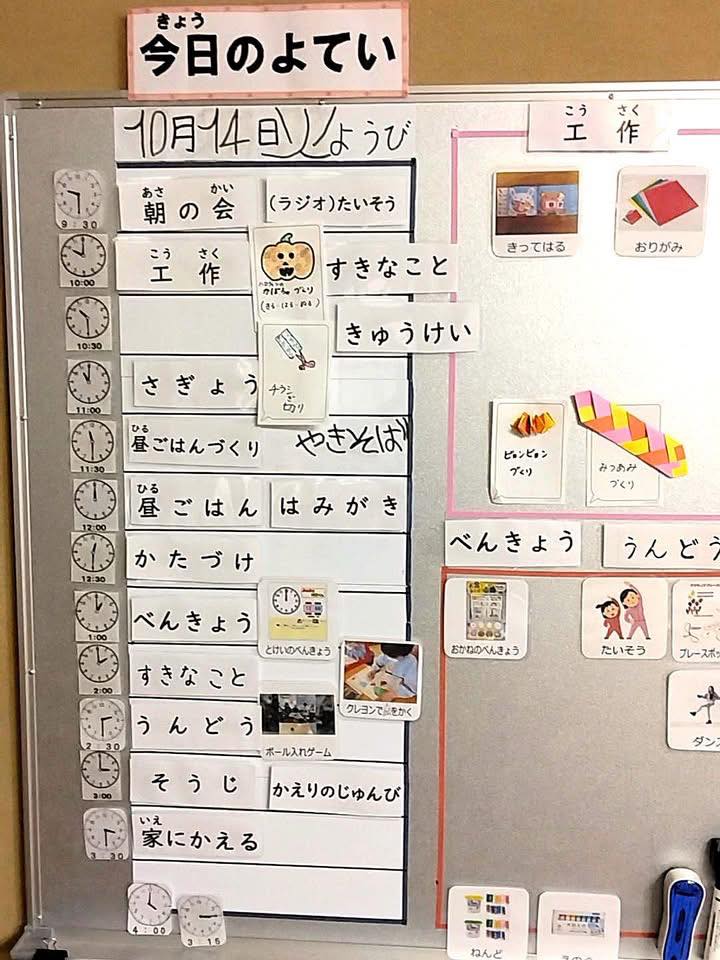 きょう
今日のよてい
10月14日(火)ようび
9:30
あさ かい
朝の会
(ラジオ)たいそう
10:00
こう さく
工作
かばんづくり
すきなこと
10:30
きゅうけい
11:00
さぎょう
チラシ
切り
11:30
ひる
昼ごはんづくり
やきそば
12:00
ひる
昼ごはん
はみがき
12:30
かたづけ
1:00
べんきょう
とけいのべんきょう
2:00
すきなこと
クレヨンで
をかく
2:30
うんどう
ボール入れゲーム
3:00
そうじ
かえりのじゅんび
3:30
いえ
家にかえる
4:00
3:15
こう さく
工作
きってはる
おりがみ
ピョンピョン
づくり
みつあみ
づくり
べんきょう
うんどう
おかねのべんきょう
たいそう
ブレースボッ
ダンス
ねんど